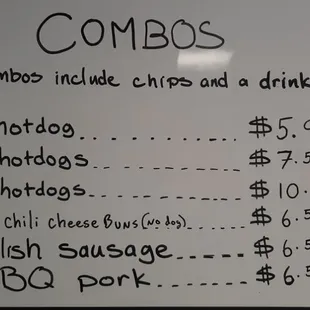 COMBOS
mbos include chips and a drink
hotdog ........ $5.
hotdogs -------- $7.5
hotdogs -------- $10.
chili cheese Buns (No dog) ........ $6.5
lish sausage ----- $6.5
BQ pork ------- $6.5